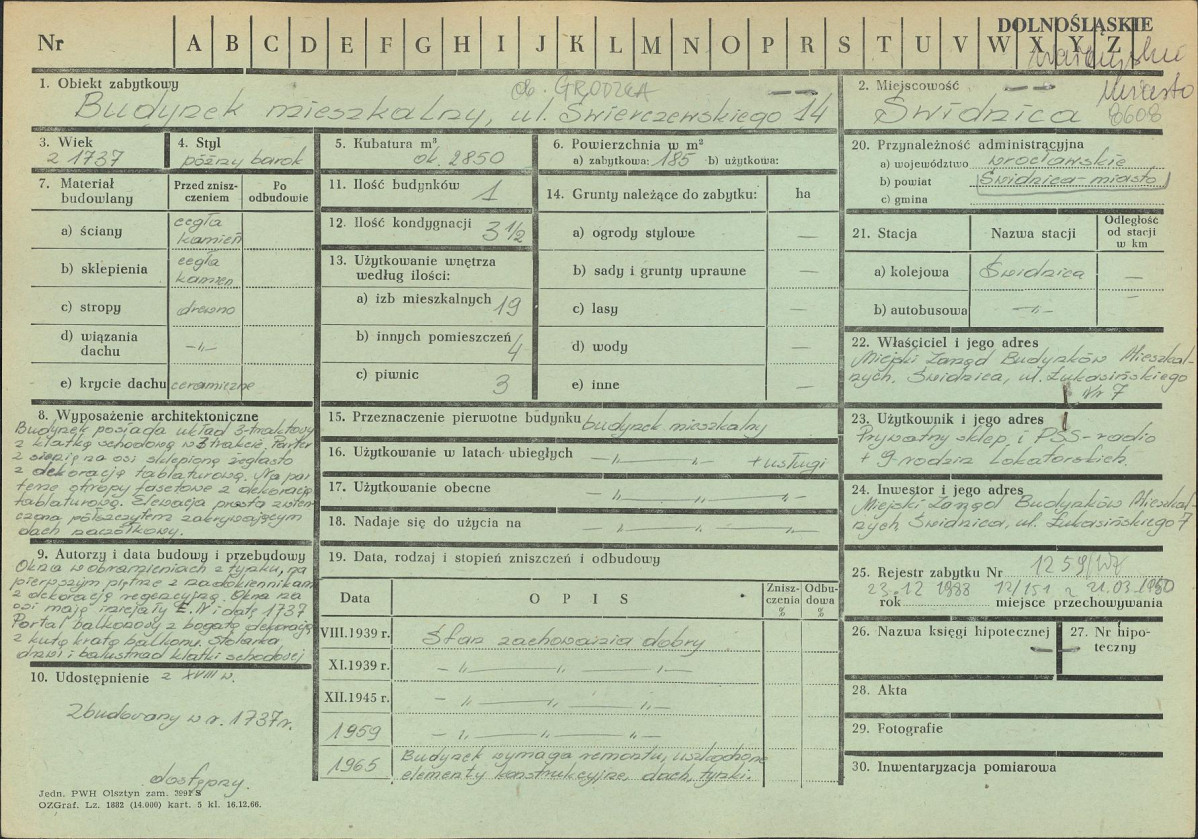 DOLNOŚLĄSKIE
Nr A B C D E F G H I J K L M N O P R S T U V W X Y Z
miasto
1. Obiekt zabytkowy ob. GRODZKA
Budynek mieszkalny, ul. Świerczewskiego 14
2. Miejscowość
Świdnica 8608
3. Wiek
z 1737
4. Styl
późny barok
5. Kubatura m³
ok. 2850
6. Powierzchnia w m²
a) zabytkowa: 185 b) użytkowa:
7. Materiał budowlany
Przed zniszczeniem
Po odbudowie
a) ściany cegła kamień
b) sklepienia cegła kamień
c) stropy drewno
d) wiązania dachu -„-
e) krycie dachu ceramiczne
8. Wyposażenie architektoniczne
Budynek posiada układ 3-traktowy
z klatką schodową w 3 trakcie. Parter
z sienią na osi sklepioną żeglasto
z dekoracją tablaturową. Na par
terze stropy fasetowe z dekoracją
tablaturową. Elewacja prosta zwień-
czona półszczytem zakrywającym
dach naczółkowy.
9. Autorzy i data budowy i przebudowy
Okna w obramieniach z tynku, na
pierwszym piętrze z nadokiennikami
z dekoracją regencyjną. Okna na
osi mają inicjały E. W i datę 1737
Portal balkonowy z bogatą dekoracją
z kutą kratą balkonu. Stolarka
drzwi i balustrad klatki schodowej
10. Udostępnienie z XVIII w.
Zbudowany w r. 1737r.
dostępny.
Jedn. PWH Olsztyn zam. 3091 S
OZGraf. Lz. 1882 (14.000) kart. 5 kl. 16.12.66.
11. Ilość budynków 1
12. Ilość kondygnacji 3 1/2
13. Użytkowanie wnętrza
według ilości:
a) izb mieszkalnych 19
b) innych pomieszczeń 4
c) piwnic 3
14. Grunty należące do zabytku: ha
a) ogrody stylowe —
b) sady i grunty uprawne —
c) lasy —
d) wody —
e) inne —
15. Przeznaczenie pierwotne budynku budynek mieszkalny
16. Użytkowanie w latach ubiegłych -„- + usługi
17. Użytkowanie obecne -„- „ -„-
18. Nadaje się do użycia na -„- „ „
19. Data, rodzaj i stopień zniszczeń i odbudowy
Data O P I S Zniszczenia % Odbudowa %
VIII.1939 r. Stan zachowania dobry
XI.1939 r. -„- „ -„-
XII.1945 r. -„- „ -„-
1959 -„- „ -„-
1965 Budynek wymaga remontu, uszkodzone
elementy konstrukcyjne, dach, tynki.
20. Przynależność administracyjna
a) województwo wrocławskie
b) powiat Świdnica-miasto
c) gmina
21. Stacja Nazwa stacji Odległość od stacji w km
a) kolejowa Świdnica —
b) autobusowa -„- —
22. Właściciel i jego adres
Miejski Zarząd Budynków Mieszkal-
nych. Świdnica, ul. Łukasińskiego
Nr 7
23. Użytkownik i jego adres
Prywatny sklep i PSS-radio
+ 9 rodzin lokatorskich.
24. Inwestor i jego adres
Miejski Zarząd Budynków Mieszkal-
nych Świdnica, ul. Łukasińskiego 7
25. Rejestr zabytku Nr 1259/WŁ
23.12 1988 12/151 z 21.03.1960
rok miejsce przechowywania
26. Nazwa księgi hipotecznej —
27. Nr hipoteczny —
28. Akta
29. Fotografie
30. Inwentaryzacja pomiarowa